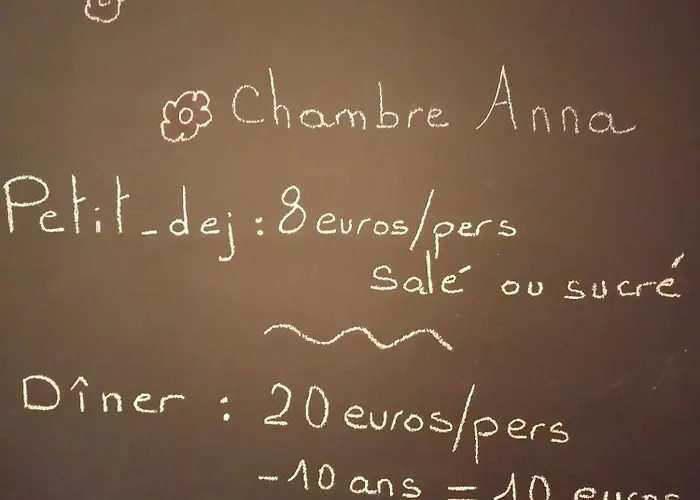 Chambre Anna
Petit-dej : 8 euros/pers
salé ou sucré
Dîner : 20 euros/pers
-10 ans = 10 euros